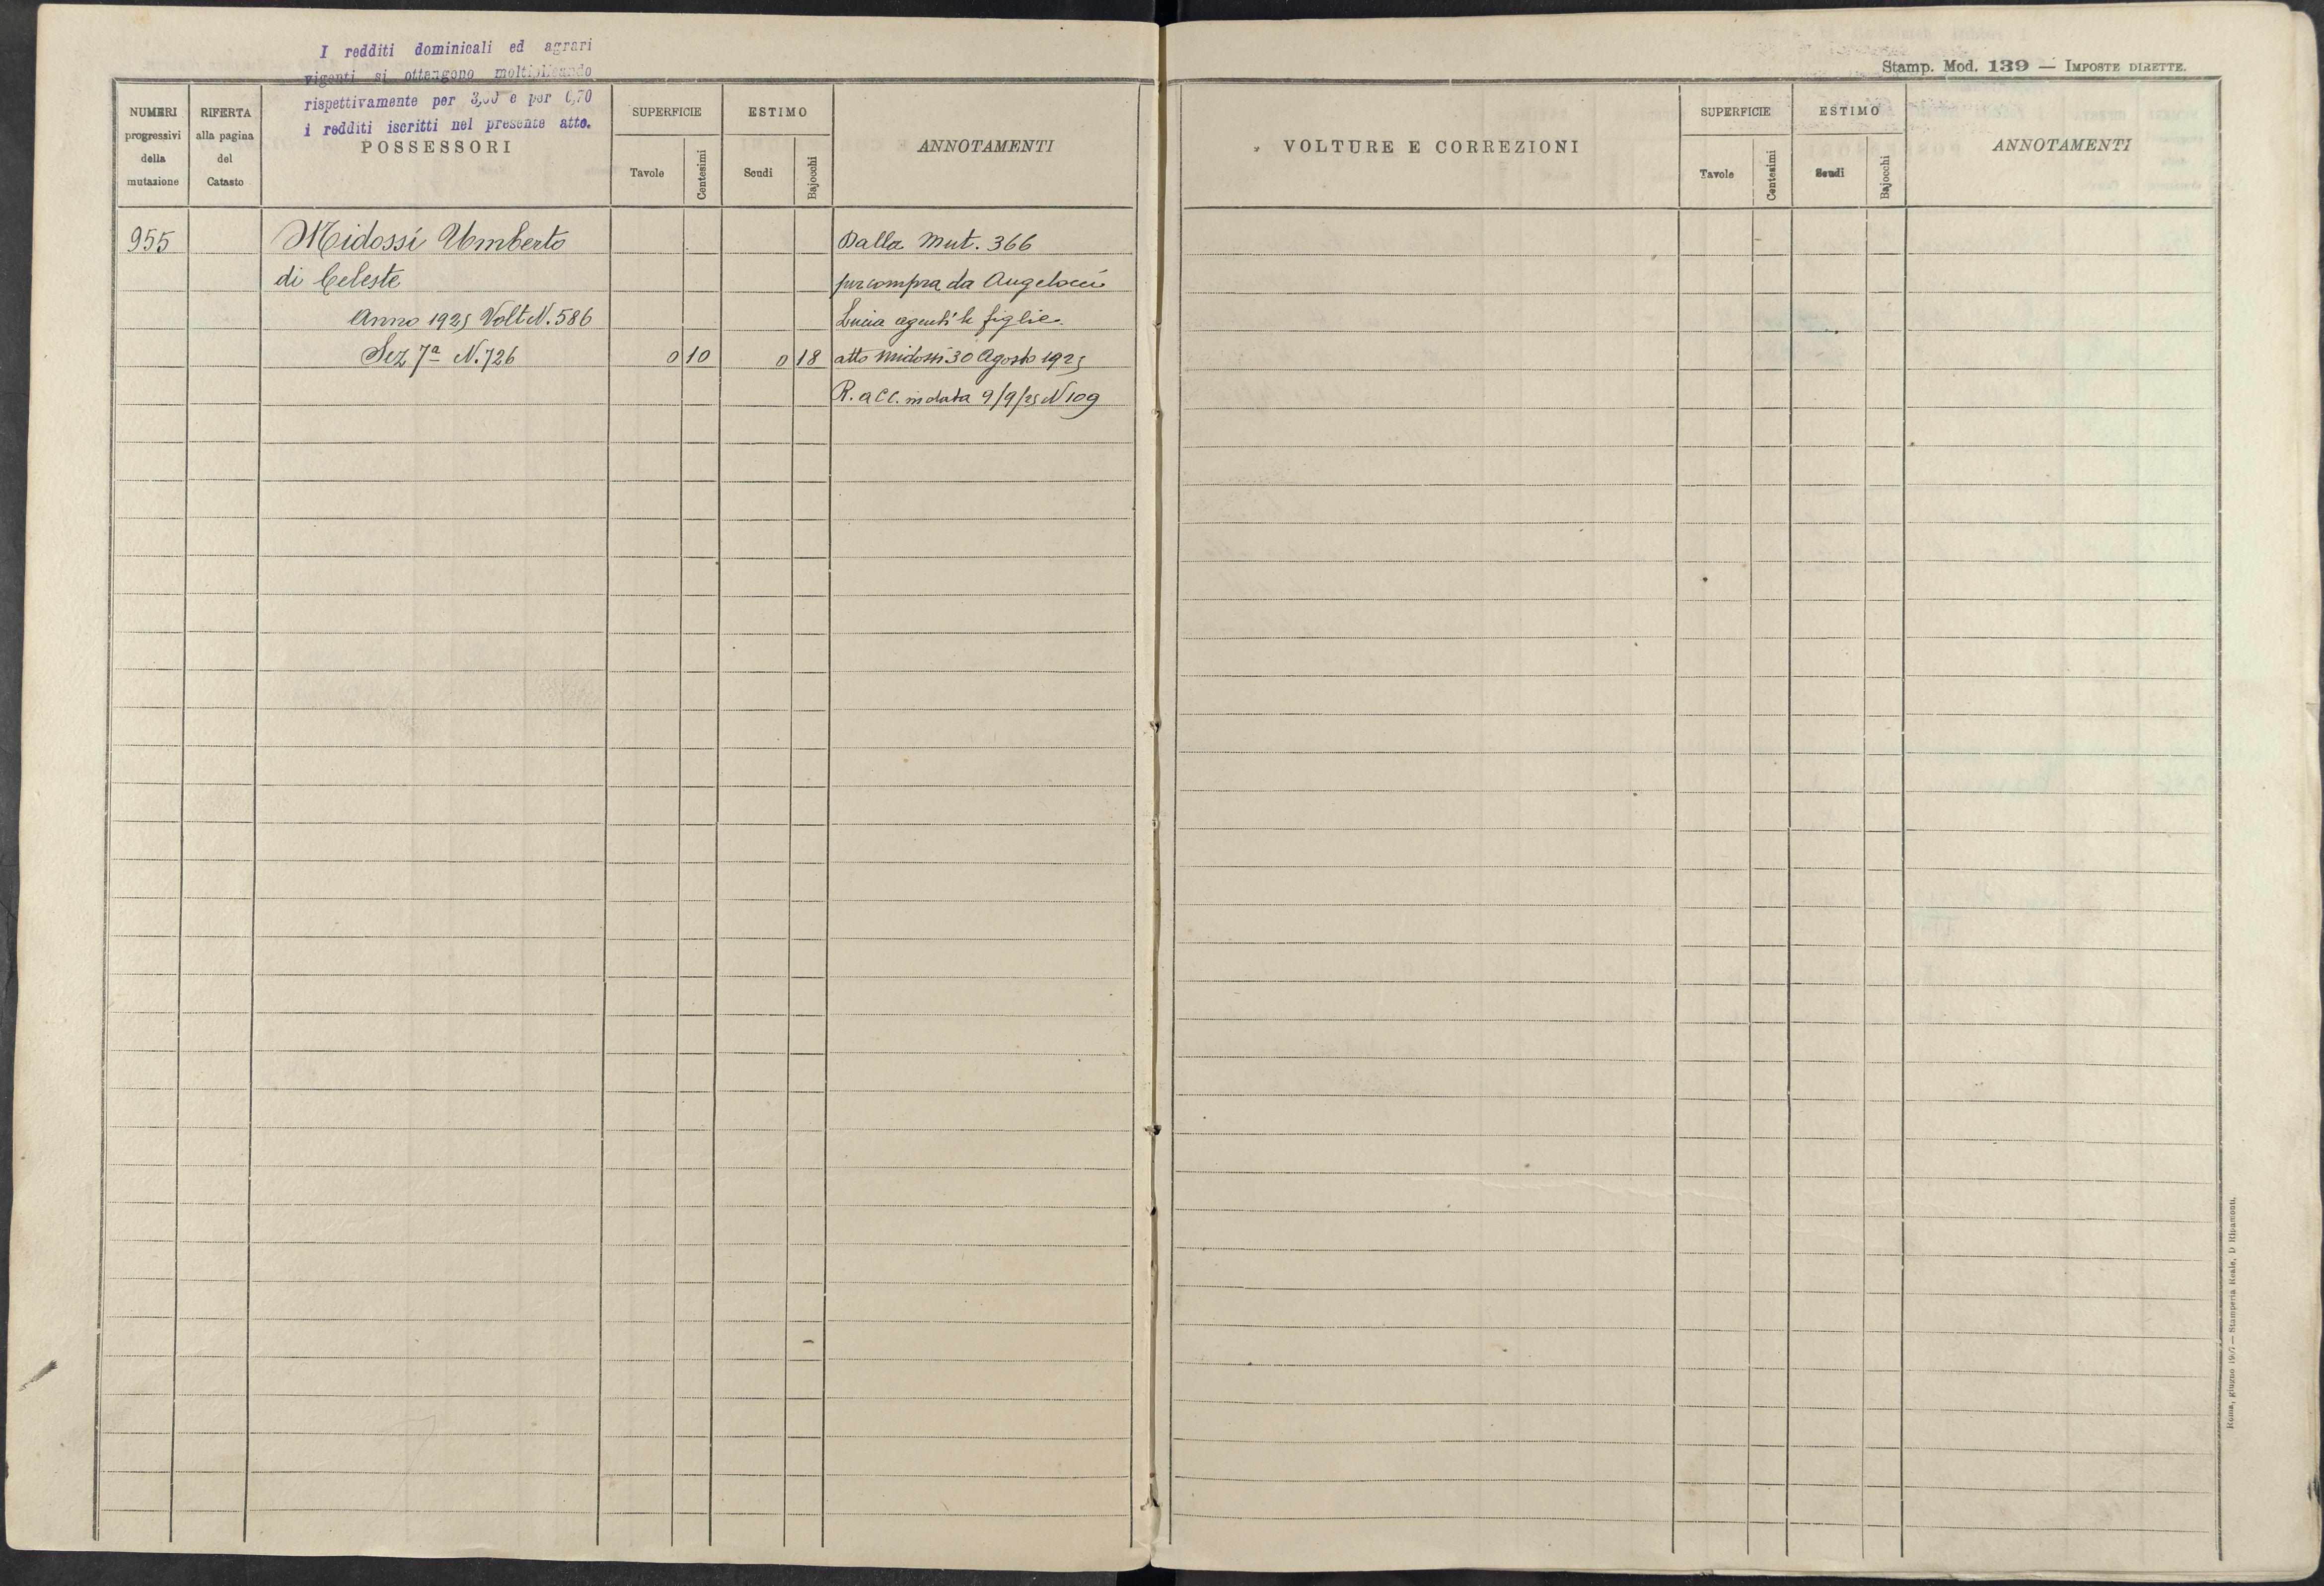 I redditi dominicali ed agrari
vigenti si ottengono moltiplicando
rispettivamente per 3,00 e per 0,70
i redditi iscritti nel presente atto.
NUMERI
progressivi
della
mutazione
RIFERTA
alla pagina
del
Catasto
POSSESSORI
SUPERFICIE
Tavole
Centesimi
ESTIMO
Scudi
Bajocchi
ANNOTAMENTI
955 Midossi Umberto Dalla Mut. 366
di Celeste per compra da Angelocci
Anno 1925 Volt N. 586 Lucia figlie
Sez 7ª N. 726 0 10 0 18 atto Midossi 30 Agosto 1925
R. a C. in data 9/9/25 N 109
Stamp. Mod. 139 — IMPOSTE DIRETTE.
VOLTURE E CORREZIONI
SUPERFICIE
Tavole
Centesimi
ESTIMO
Scudi
Bajocchi
ANNOTAMENTI
Roma, giugno — Stamperia Reale, D Ripamonti.